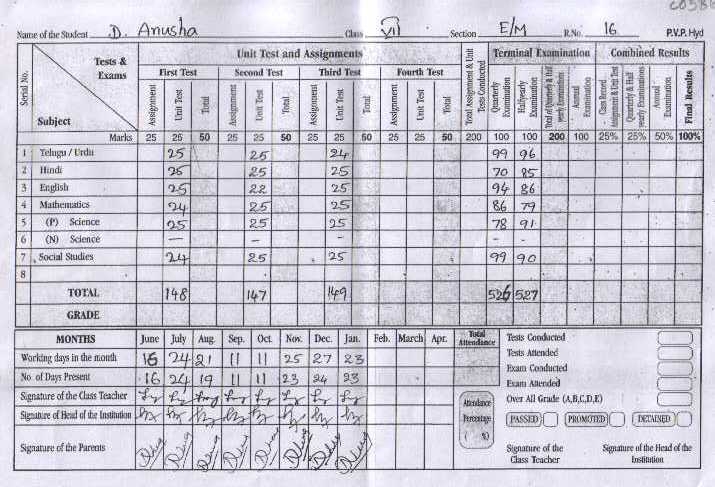 Name of the Student D. Anusha Class VII Section E/M R.No. 16 P.V.P. Hyd
Serial No. Tests & Exams Subject Unit Test and Assignments Total Assignment & Unit Tests Conducted Terminal Examination Combined Results
First Test Second Test Third Test Fourth Test
Assignment Unit Test Total Assignment Unit Test Total Assignment Unit Test Total Assignment Unit Test Total Quarterly Examination Halfyearly Examination Total of Quarterly & Half yearly Examinations Annual Examination Class Record Assignment & Unit Test Quarterly & Half yearly Examinations Annual Examination Final Results
Marks 25 25 50 25 25 50 25 25 50 25 25 50 200 100 100 200 100 25% 25% 50% 100%
1 Telugu / Urdu 25 25 24 99 96
2 Hindi 25 25 25 70 85
3 English 25 22 25 94 86
4 Mathematics 24 25 25 86 79
5 (P) Science 25 25 25 78 91
6 (N) Science — - - - -
7 Social Studies 24 25 25 99 90
8
TOTAL 148 147 149 526 527
GRADE
MONTHS June July Aug. Sep. Oct. Nov. Dec. Jan. Feb. March Apr. Total Attendance
Working days in the month 16 24 21 11 11 25 27 23
No of Days Present 16 24 19 11 11 23 24 23
Signature of the Class Teacher
Signature of Head of the Institution
Signature of the Parents
Attendance Percentage ( %)
Tests Conducted
Tests Attended
Exam Conducted
Exam Attended
Over All Grade (A,B,C,D,E)
PASSED PROMOTED DETAINED
Signature of the Class Teacher
Signature of the Head of the Institution